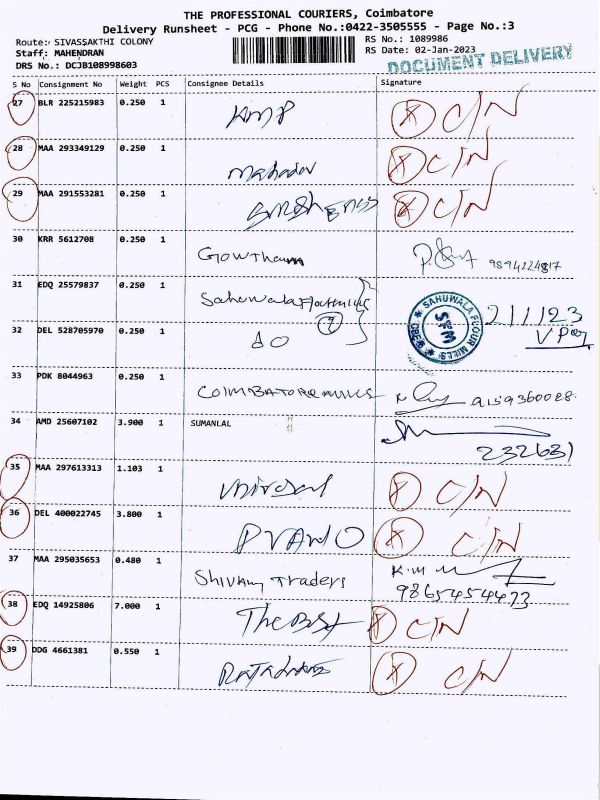 THE PROFESSIONAL COURIERS, Coimbatore
Delivery Runsheet - PCG - Phone No.:0422-3505555 - Page No.:3
Route: SIVASSAKTHI COLONY
RS No.: 1089986
Staff: MAHENDRAN
RS Date: 02-Jan-2023
DRS No.: DCJB108998603
DOCUMENT DELIVERY
S No Consignment No Weight PCS Consignee Details Signature
27 BLR 225215983 0.250 1 KMP C/N
28 MAA 293349129 0.250 1 C/N
29 MAA 291553281 0.250 1 C/N
30 KRR 5612708 0.250 1 Gowtham 9894224817
31 EDQ 25579837 0.250 1
SAHUWALA FLOUR MILLS CBE-9 SFM
2/1/23
32 DEL 528705970 0.250 1 DO
33 PDK 8044963 0.250 1 9159360028
34 AMD 25607102 3.900 1 SUMANLAL
232631
35 MAA 297613313 1.103 1 C/N
36 DEL 400022745 3.800 1 C/N
37 MAA 295035653 0.480 1 Shivam Traders K.M
9865454473
38 EDQ 14925806 7.000 1 The Best C/N
39 DDG 4661381 0.550 1 C/N